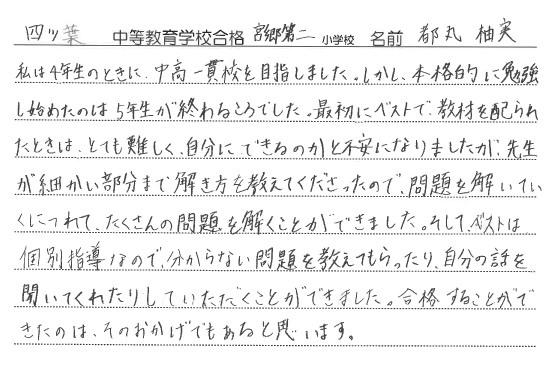 四ツ葉 中等教育学校合格 宮郷第二 小学校 名前 都丸 柚実
私は4年生のときに、中高一貫校を目指しました。しかし、本格的に勉強
し始めたのは5年生が終わるころでした。最初にベストで、教材を配られ
たときは、とても難しく、自分にできるのかと不安になりましたが、先生
が細かい部分まで解き方を教えてくださったので、問題を解いてい
くにつれて、たくさんの問題を解くことができました。そして、ベストは
個別指導なので、分からない問題を教えてもらったり、自分の話を
聞いてくれたりしていただくことができました。合格することがで
きたのは、そのおかげでもあると思います。